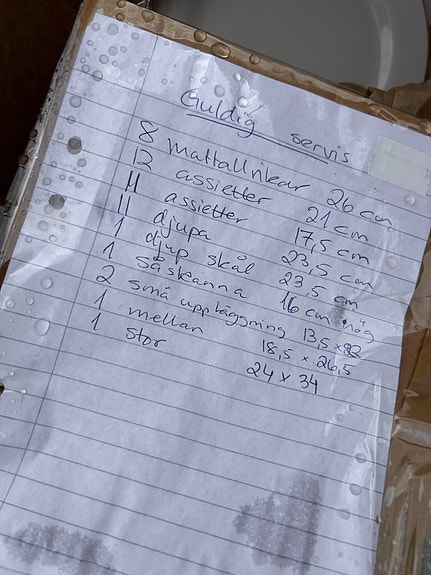 Guldig servis
8 Mattallrikar 26 cm
12 assietter 21 cm
11 assietter 17,5 cm
11 djupa 23,5 cm
1 djup skål 23,5 cm
1 såskanna 16 cm hög
2 små uppläggsning 13,5 x
1 mellan 18,5 x 26,5
1 stor 24 x 34